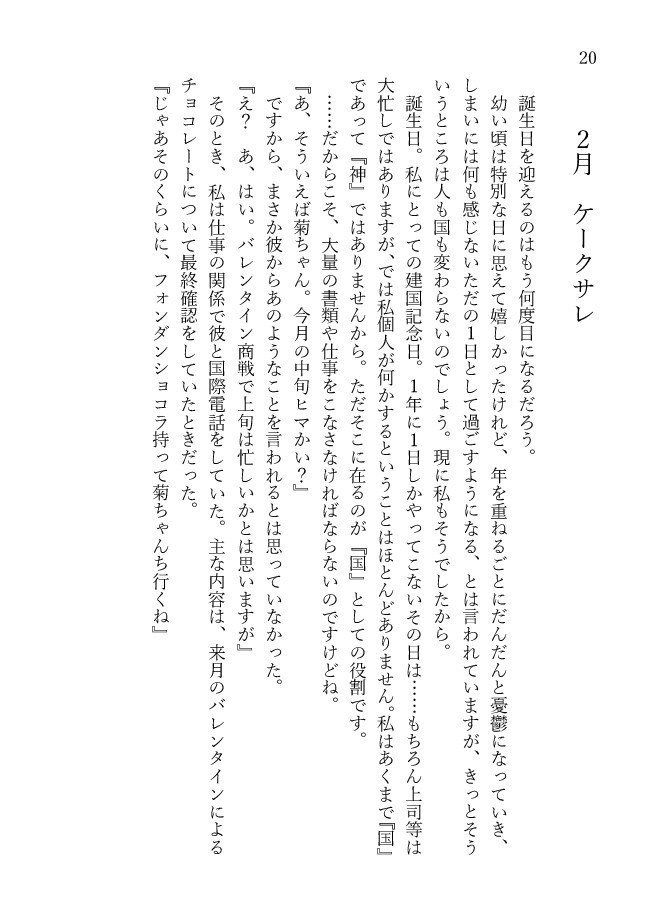 20
2月　ケークサレ
誕生日を迎えるのはもう何度目になるだろう。
幼い頃は特別な日に思えて嬉しかったけれど、年を重ねるごとにだんだんと憂鬱になっていき、
しまいには何も感じないただの1日として過ごすようになる、とは言われていますが、きっとそう
いうところは人も国も変わらないのでしょう。現に私もそうでしたから。
誕生日。私にとっての建国記念日。1年に1日しかやってこないその日は……もちろん上司等は
大忙しではありますが、では私個人が何かするということはほとんどありません。私はあくまで『国』
であって『神』ではありませんから。ただそこに在るのが『国』としての役割です。
……だからこそ、大量の書類や仕事をこなさなければならないのですけどね。
『あ、そういえば菊ちゃん。今月の中旬ヒマかい？』
ですから、まさか彼からあのようなことを言われるとは思っていなかった。
『え？　あ、はい。バレンタイン商戦で上旬は忙しいかとは思いますが』
そのとき、私は仕事の関係で彼と国際電話をしていた。主な内容は、来月のバレンタインによる
チョコレートについて最終確認をしていたときだった。
『じゃあそのくらいに、フォンダンショコラ持って菊ちゃんち行くね』